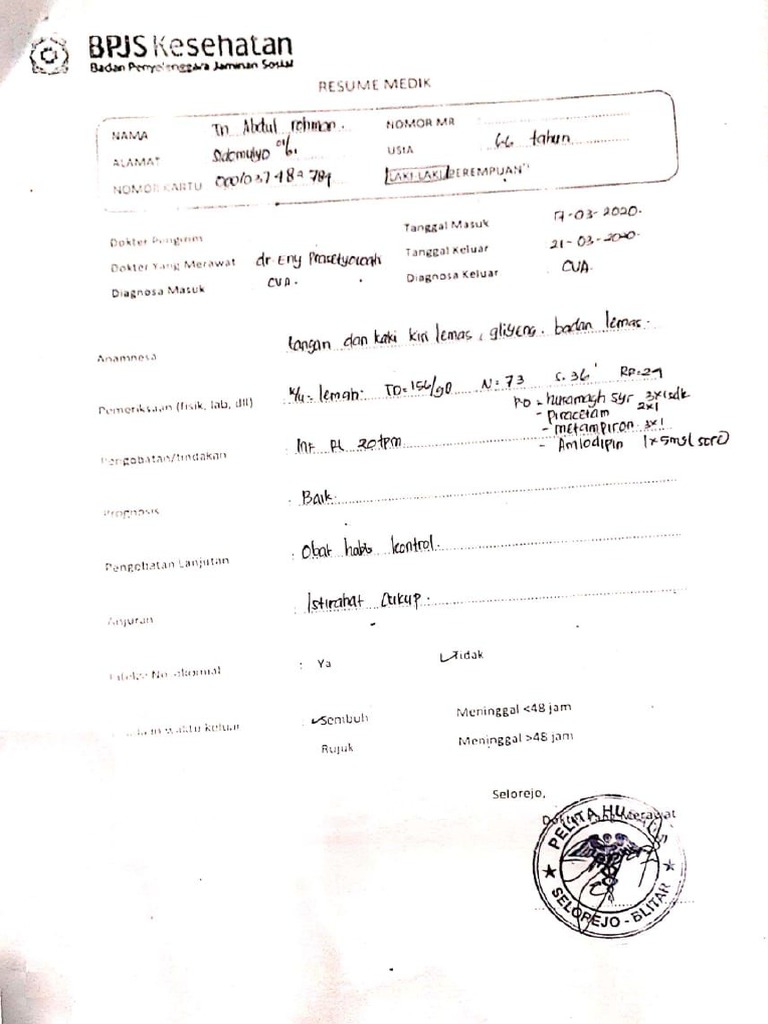 BPJS Kesehatan
Badan Penyelenggara Jaminan Sosial
RESUME MEDIK
NAMA Tn Abdul rohman. NOMOR MR
ALAMAT Sidomulyo USIA 66 tahun
NOMOR KARTU LAKI LAKI/PEREMPUAN*)
Dokter Pengirim Tanggal Masuk 17-03-2020.
Dokter Yang Merawat dr Eny Prasetyowati Tanggal Keluar 21-03-2020.
Diagnosa Masuk CVA. Diagnosa Keluar CVA.
Anamnesa tangan dan kaki kiri lemas, gliyeng. badan lemas.
Pemeriksaan (fisik, lab, dll) K/u = lemah. TD=156/90 N: 73 S. 36' RR=24
Pengobatan/tindakan : Inf RL 20 tpm PO - syr 3x1 sdk
- Piracetam 2x1
- Metampiron 3x1
- Amlodipin 1x5mg (sore)
Prognosis : Baik.
Pengobatan Lanjutan : Obat habis kontrol.
Anjuran : Istirahat Cukup.
Infeksi Nosokomial : Ya Tidak
waktu keluar : Sembuh Meninggal <48 jam
Rujuk Meninggal >48 jam
Selorejo,
Dokter Yang Merawat
PELITA HUSADA
SELOREJO - BLITAR